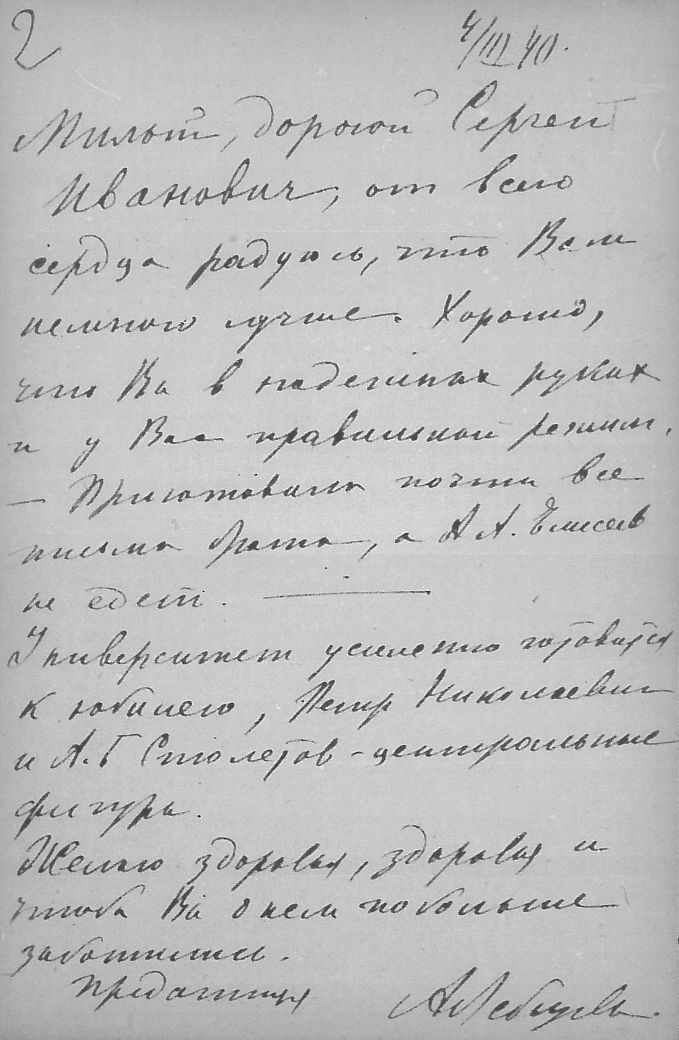 2
4/III 40.
Милый, дорогой Сергей
Иванович, от всего
сердца радуюсь, что Вам
немного лучше. Хорошо,
что Вы в надежных руках
и у Вас правильный режим.
— Приготовила почти все
письма брата, а А. А. Елисеев
не едет. —
Университет усиленно готовится
к юбилею, Петр Николаевич
и А. Г. Столетов – центральные
фигуры.
Желаю здоровья, здоровья и
чтобы Вы о нем побольше
заботились.
Преданная
А Лебедева.